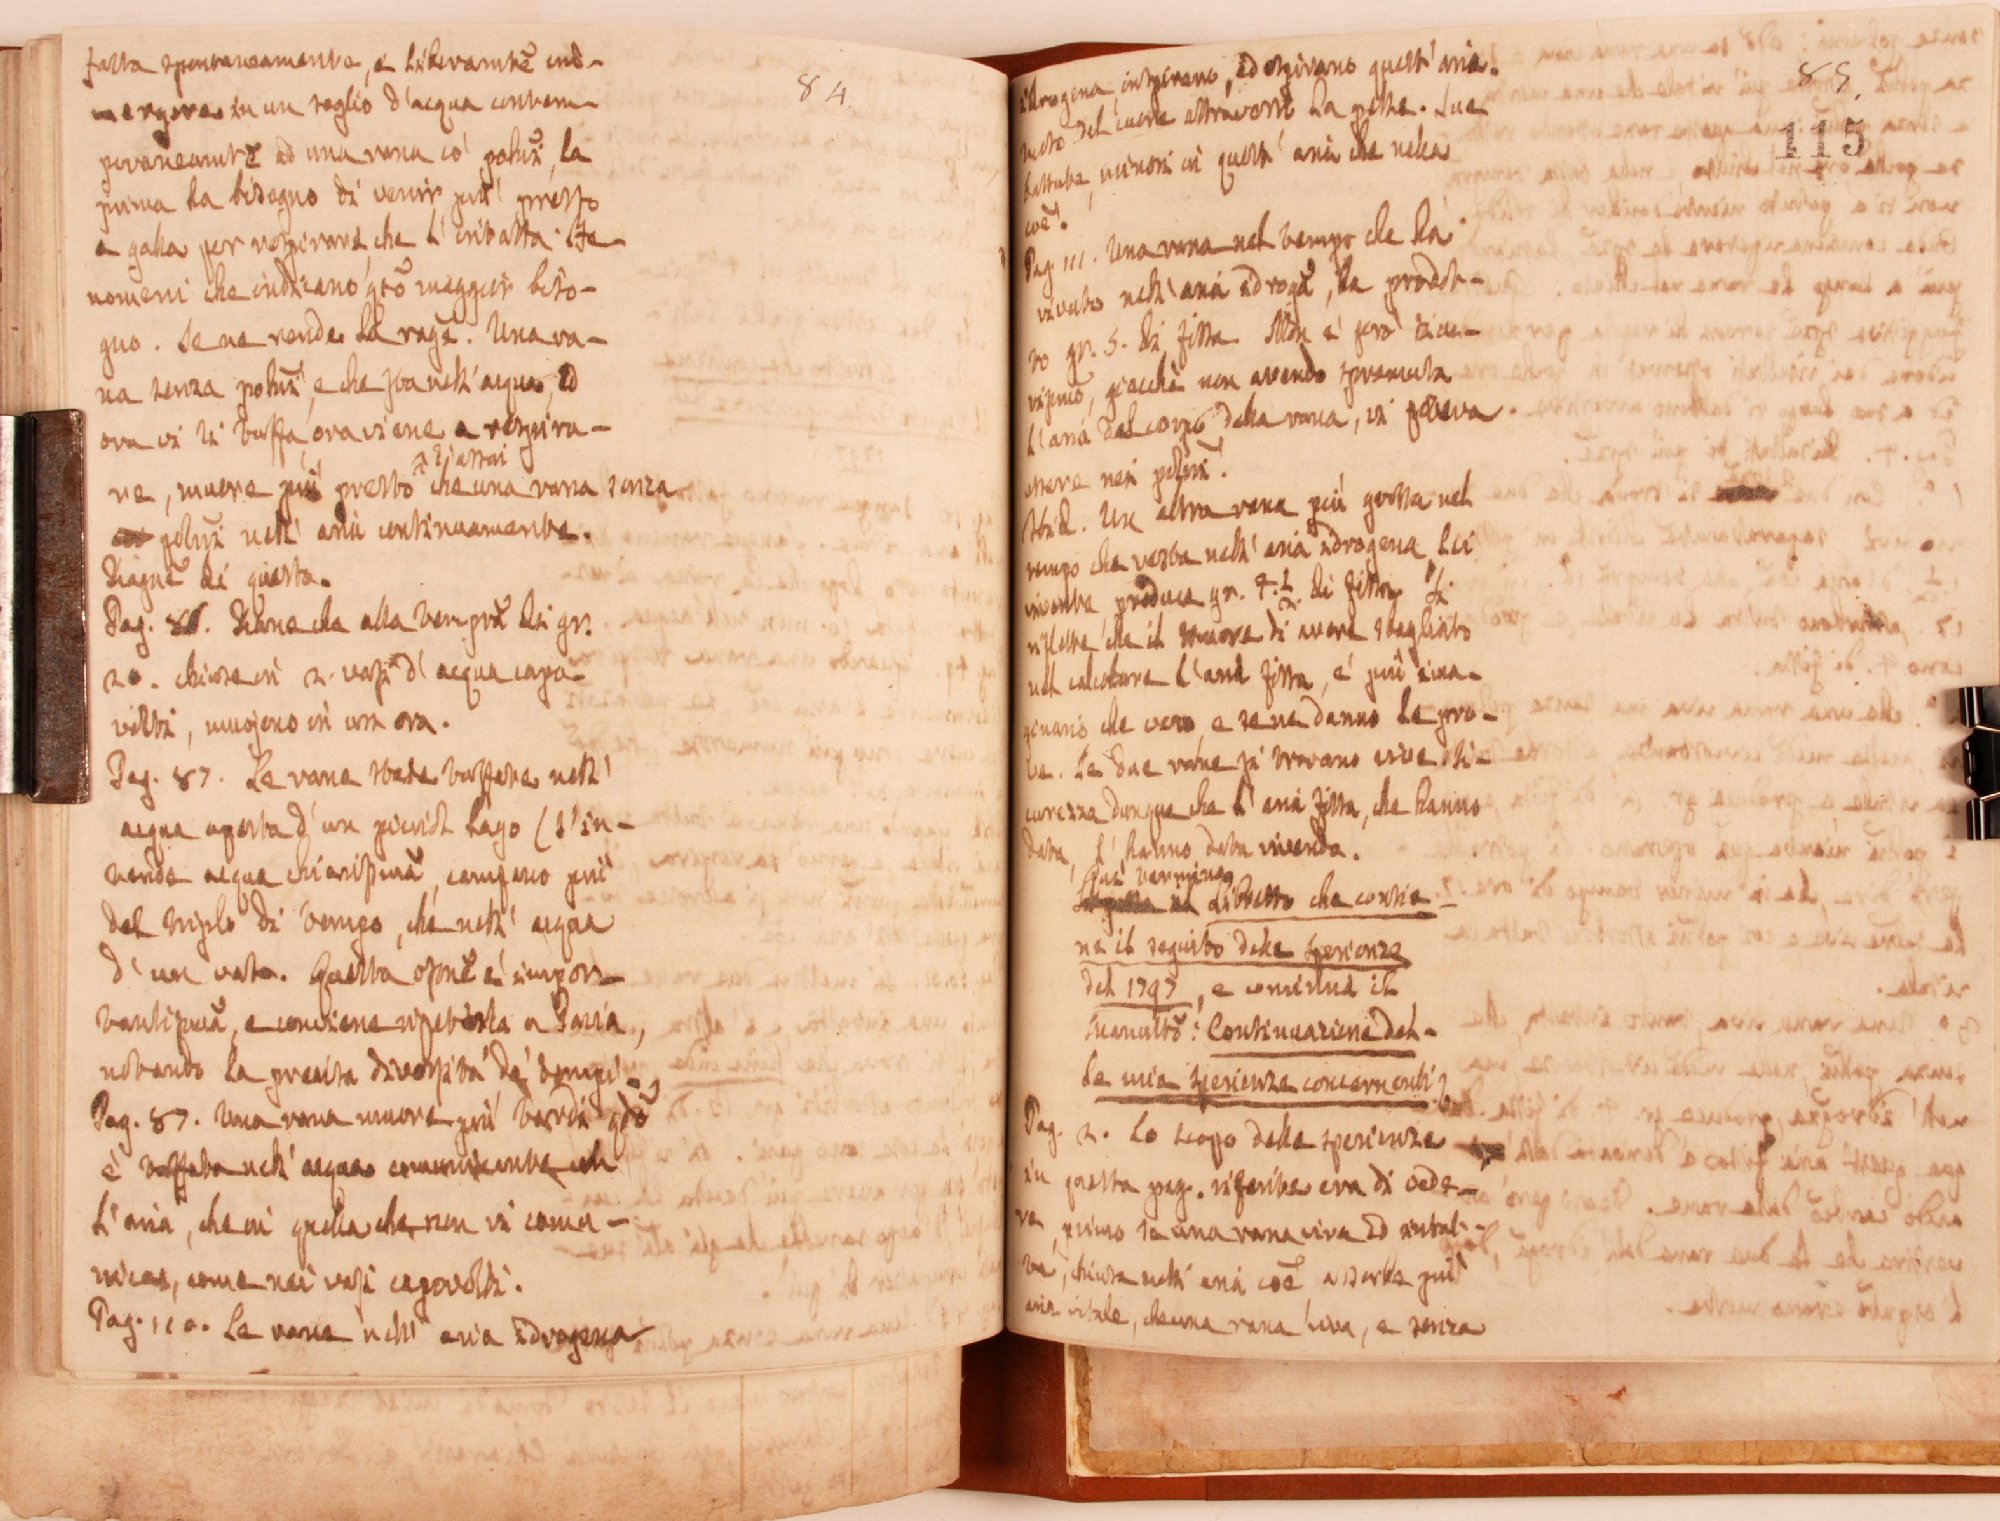 84.
fatta spontaneamente, e liberamte im-
mergere in un seglio d'acqua contem-
poraneamte ad una rana co' polmi, la
prima ha bisogno di venir più presto
a galla per respirare, che l' intatta. Fe-
nomeni che indicano qto maggior biso-
gno. Se ne rende la rage. Una ra-
na senza polmi, e che sta nell'acqua, ed
ora vi si tuffa, ora viene a respira-
re, muore più presto d'assai che una rana senza
polmi nell' aria continuamente.
Ragne di questo.
Pag. 86. Rane che alla tempra di gr.
20. chiuse in 2. vasi d' acqua capo-
volti, muojono in un ora.
Pag. 87. Le rane state tuffate nell'
acqua aperta d' un piccol lago (s'in-
tende acqua chiarissima, campano più
del triplo di tempo, che nell' acqua
d' un vaso. Questa ospne è impor-
tantissma, e conviene ripeterla a Pavia,
notando la precisa diversità de' tempi.
Pag. 87. Una rana muore più tardi qdo
è tuffata nell' acqua comunicante col
l' aria, che in quella che non vi comu-
nica, come nei vasi capovolti.
Pag. 110. Le rane nell' aria idrogena
85.
115
idrogena, inspirano, ed espirano quest' aria.
moto del cuore attraverso la pelle. Sue
battute, minori in quest' aria che nella
coe.
Pag. 111. Una rana nel tempo che ha
vivuto nell' aria idroga, ha prodot-
to gr. 5. di fissa. Non è però sicu-
rissmo, giacchè non avendo spremuta
l'aria dal corpo della rana, vi poteva
essere nei polmi.
Ibid. Un altra rana più grossa nel
tempo che resta nell' aria idrogena, lei
vivente produce gr. 4. 1/2 di fissa. Si
riflette che il timore di avere sbagliato
nel calcolare l' aria fissa, è più ima-
ginario che vero, e se ne danno le pro-
ve. Le due rane si trovano vive. Si-
curezza dunque che l' aria fissa, che hanno
data, l' hanno data vivendo.
Qui termina
il Libretto che contie-
ne il seguito delle sperienze
del 1797, e comincia il
Manuttõ: Continuazione del-
le mie sperienze concernenti &
Pag. 2. Lo scopo delle sperienze
in questa pag. riferite era di vede-
re, primo se una rana viva ed intat-
ta, chiusa nell' aria coe assorbe più
aria vitale, che una rana viva, e senza